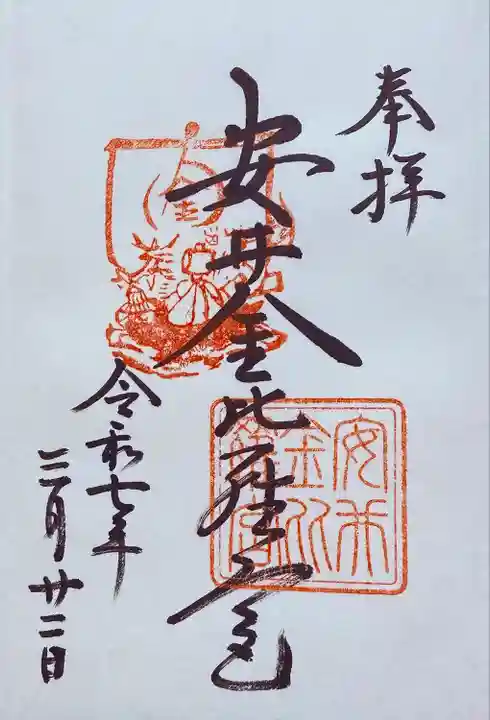 奉拝
安井金比羅宮
令和七年
三月廿二日
安井
金比
羅宮
金